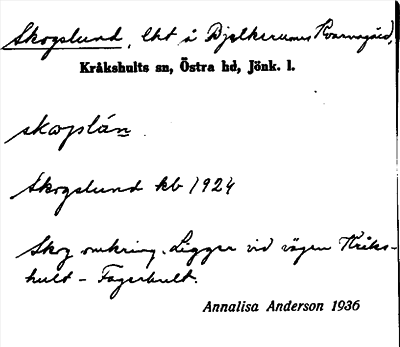 Skogslund, lht å Bjelkerums Kvarngård,
Kråkshults sn, Östra hd, Jönk. l.
skogslún
Skogslund kb 1924
Skog omkring. Ligger vid vägen Kråks-
hult - Fagerhult.
Annalisa Anderson 1936